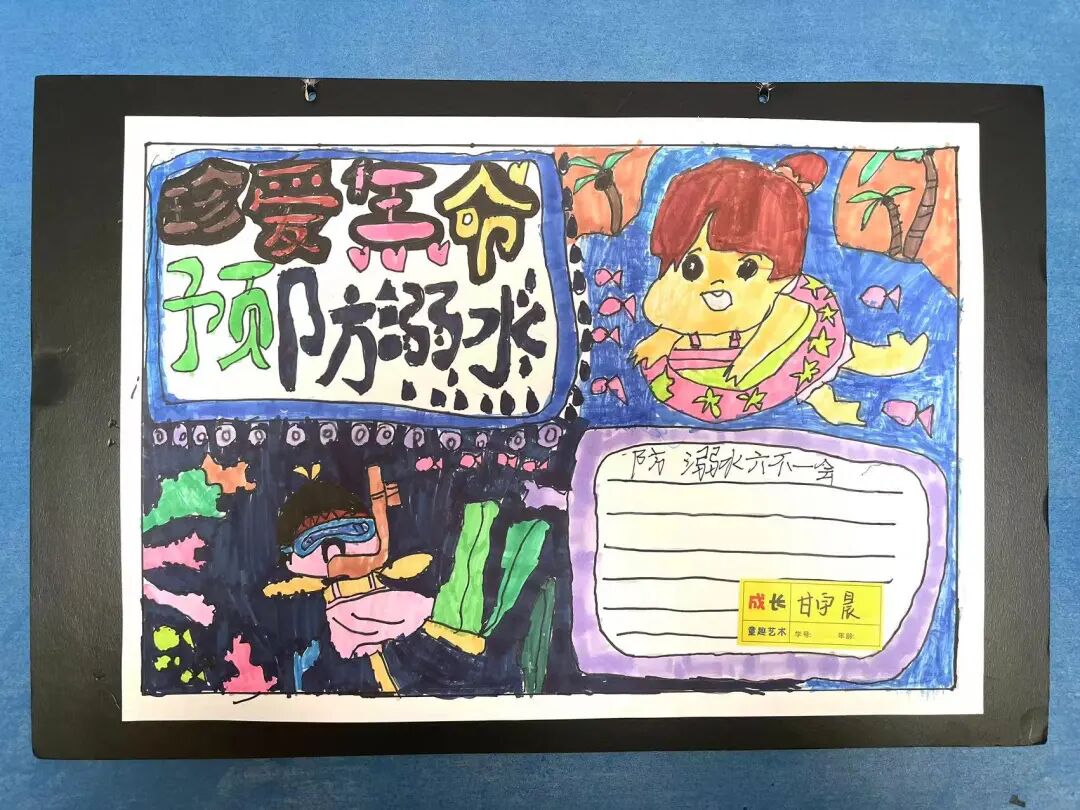 珍爱生命
预防溺水
防溺水六不一会
成长 甘宇晨
童趣艺术 学号: 年龄: